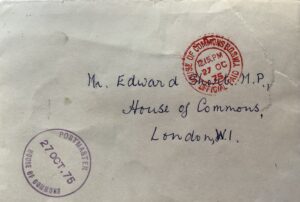 HOUSE OF COMMONS SW1A
12.15 PM
27 OC
75
OFFICIAL PAID
Mr. Edward Short M.P.,
House of Commons,
London, W1.
POSTMASTER
27 OCT. 75
HOUSE OF COMMONS